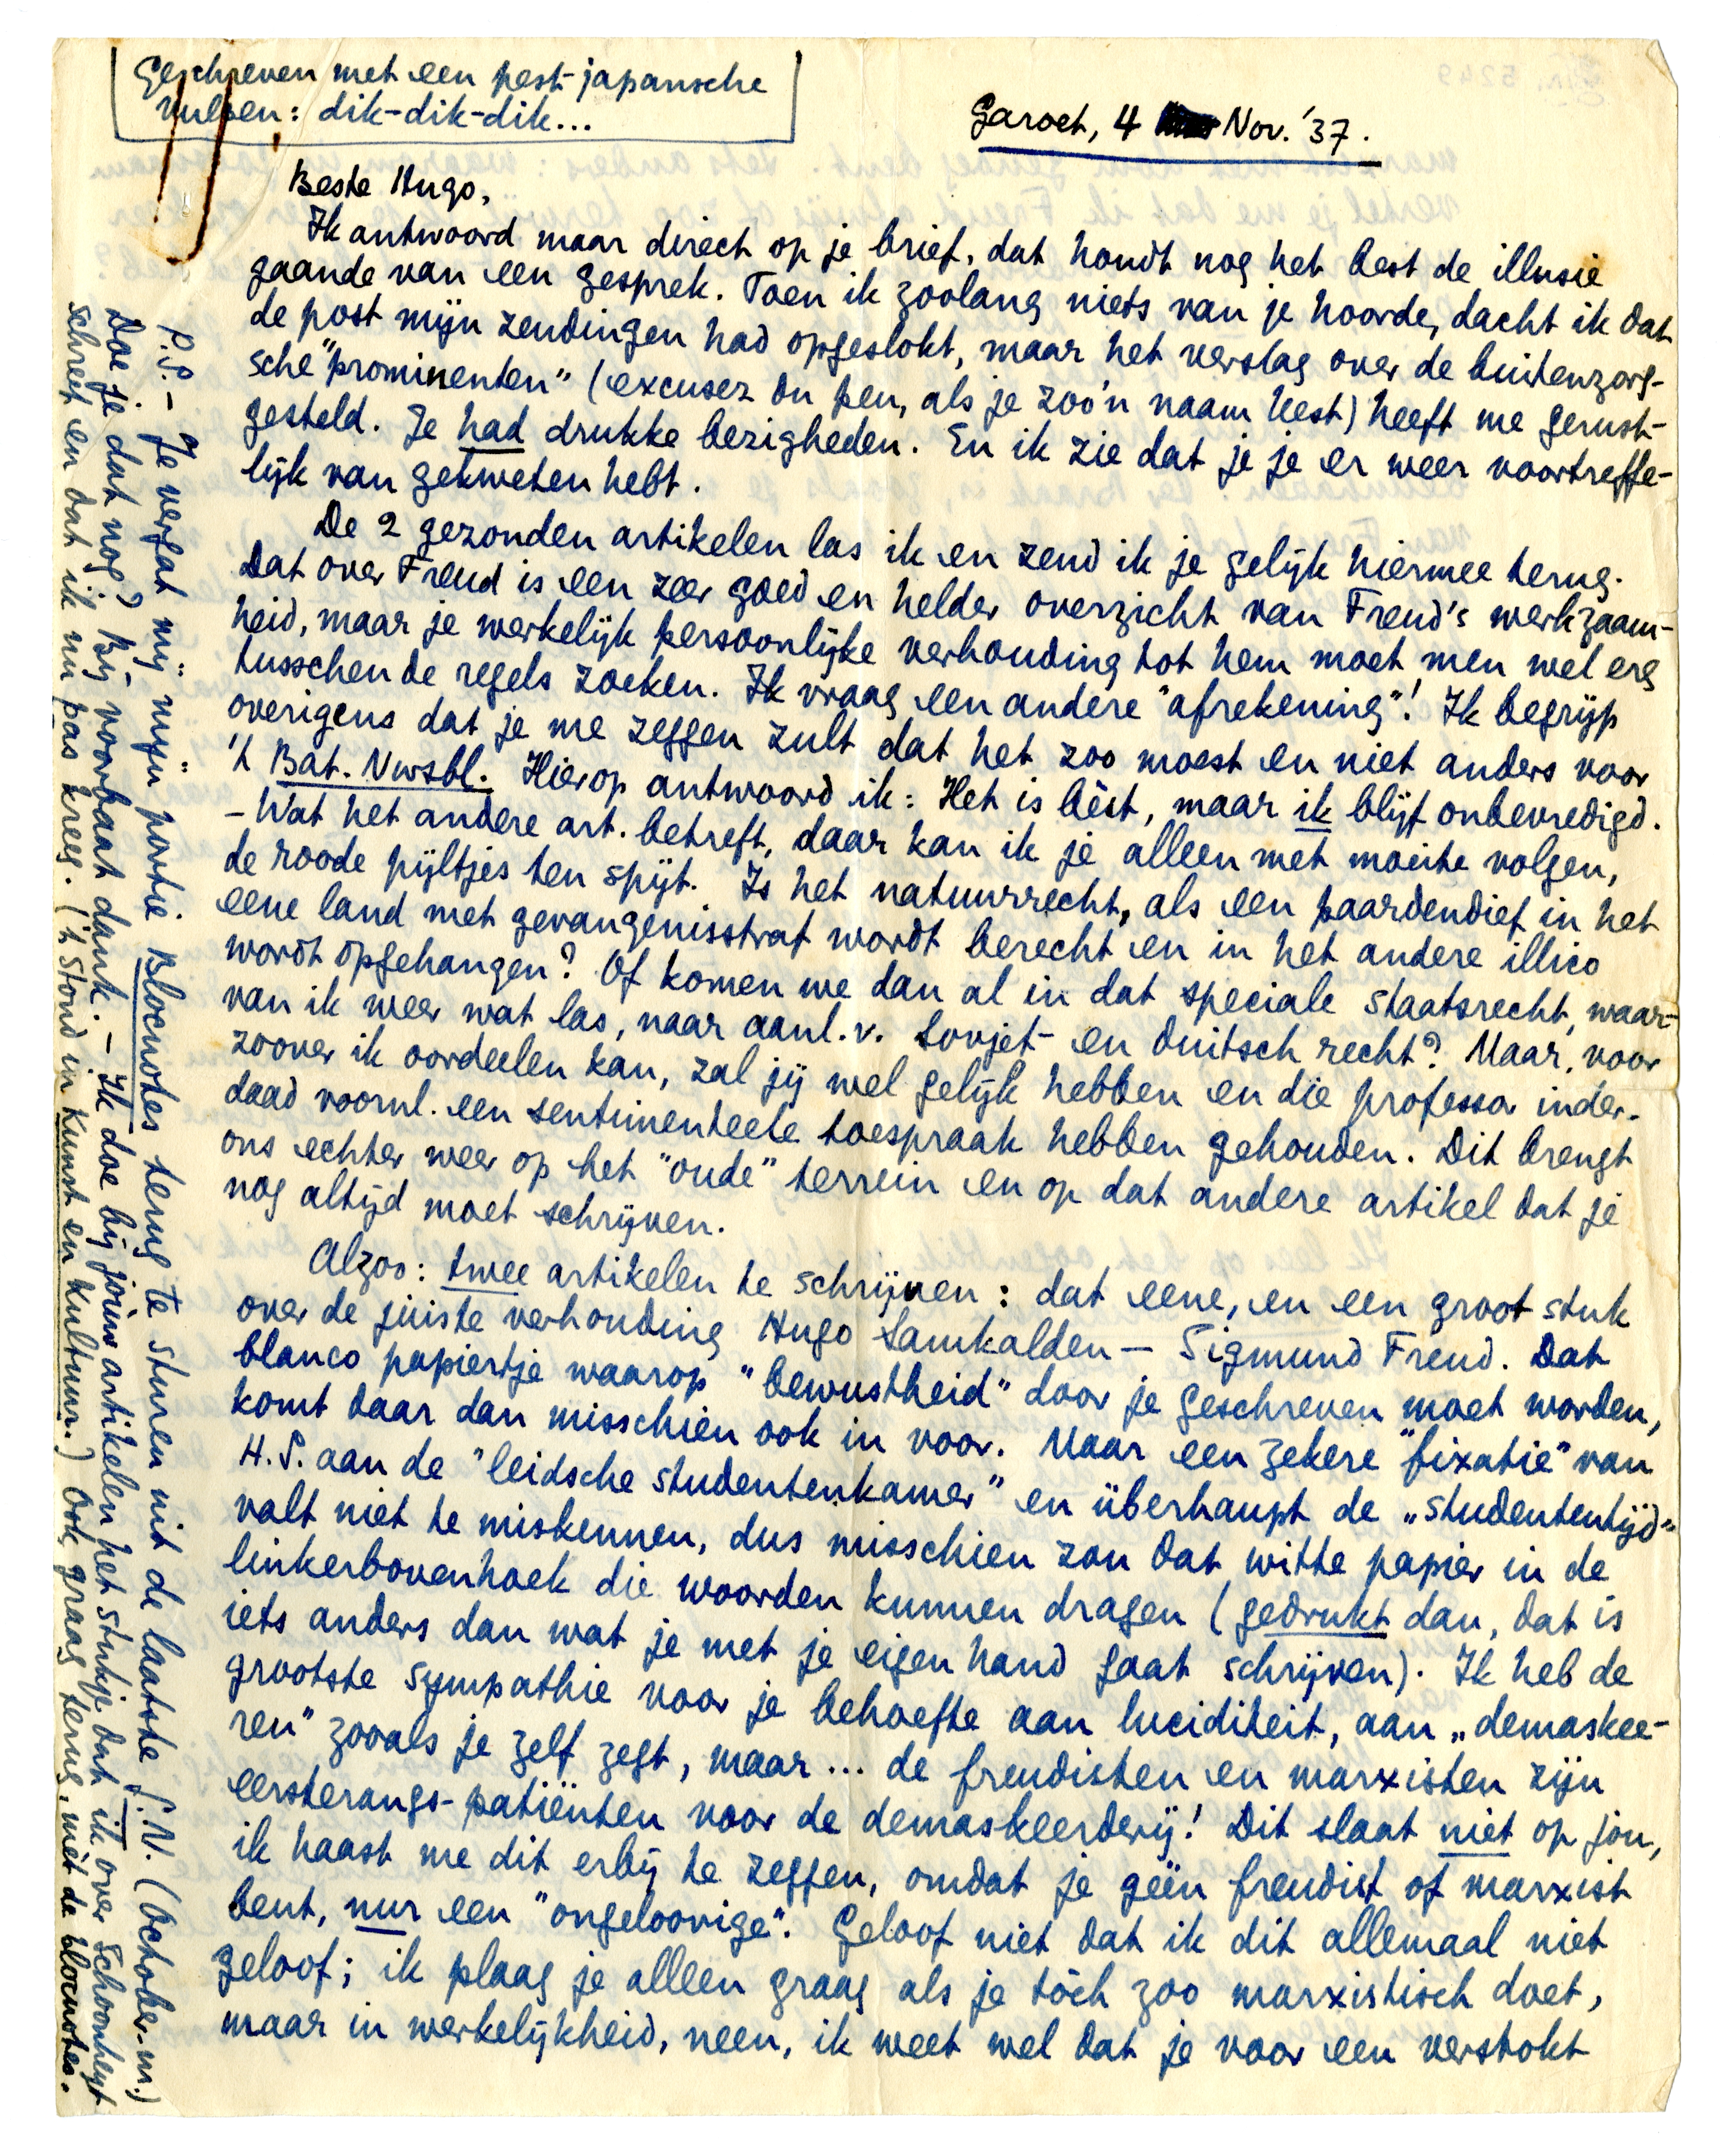 Geschreven met een pest-japansche
vulpen: dik-dik-dik...
Garoet, 4 Nov. '37.
Beste Hugo,
Ik antwoord maar direct op je brief, dat houdt nog het best de illusie
gaande van een gesprek. Toen ik zoolang niets van je hoorde, dacht ik dat
de post mijn zendingen had opgeslokt, maar het verslag over de buitenzorg-
sche "prominenten" (excusez du peu, als je zoo'n naam leest) heeft me gerust-
gesteld. Je had drukke bezigheden. En ik zie dat je je er weer voortreffe-
lijk van gekweten hebt.
De 2 gezonden artikelen las ik en zend ik je gelijk hiermee terug.
Dat over Freud is een zeer goed en helder overzicht van Freud's werkzaam-
heid, maar je werkelijk persoonlijke verhouding tot hem moet men wel erg
tusschen de regels zoeken. Ik vraag een andere "afrekening"! Ik begrijp
overigens dat je me zeggen zult dat het zoo moest en niet anders voor
't Bat. Nwsbl. Hierop antwoord ik: Het is bèst, maar ik blijf onbevredigd.
- Wat het andere art. betreft, daar kan ik je alleen met moeite volgen,
de roode pijltjes ten spijt. Is het natuurrecht, als een paardendief in het
eene land met gevangenisstraf wordt berecht en in het andere illico
wordt opgehangen? Of komen we dan al in dat speciale staatsrecht, waar-
van ik weer wat las, naar aanl. v. Sovjet- en duitsch recht? Maar, voor
zoover ik oordeelen kan, zal jij wel gelijk hebben en die professor inder-
daad voornl. een sentimenteele toespraak hebben gehouden. Dit brengt
ons echter weer op het "oude" terrein en op dat andere artikel dat je
nog altijd moet schrijven.
Alzoo: twee artikelen te schrijven: dat eene, en een groot stuk
over de juiste verhouding Hugo Samkalden — Sigmund Freud. Dat
blanco papiertje waarop "bewustheid" door je geschreven moet worden,
komt daar dan misschien ook in voor. Maar een zekere "fixatie" van
H.S. aan de "leidsche studentenkamer" en überhaupt de „studententijd"
valt niet te miskennen, dus misschien zou dat witte papier in de
linkerbovenhoek die woorden kunnen dragen (gedrukt dan, dat is
iets anders dan wat je met je eigen hand gaat schrijven). Ik heb de
grootste sympathie voor je behoefte aan luciditeit, aan „demaskee-
ren" zooals je zelf zegt, maar... de freudisten en marxisten zijn
eersterangs-patiënten voor de demaskeerderij! Dit slaat niet op jou,
ik haast me dit erbij te zeggen, omdat je géén freudist of marxist
bent, nur een "ongeloovige". Geloof niet dat ik dit allemaal niet
geloof; ik plaag je alleen graag als je tòch zoo marxistisch doet,
maar in werkelijkheid, neen, ik weet wel dat je voor een verstokt
P.S. - Je vergat mij mijn portie Blocnotes terug te sturen uit de laatste S.N. (October-nr.)
Doe je dat nog? Bij voorbaat dank. - Ik doe bij jouw artikelen het stukje dat ik over Schoonheyt
schreef en dat ik nu pas kreeg. ('t Stond in Kunst en Kultuur.) Ook graag terug, mèt de blocnotes.